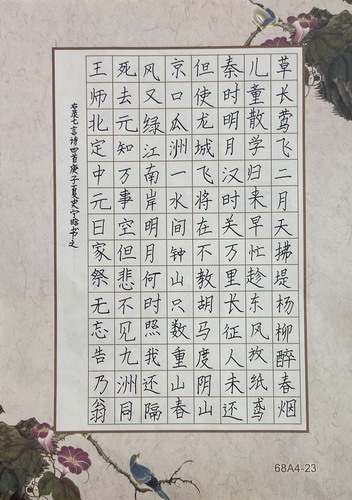 草长莺飞二月天拂堤杨柳醉春烟
儿童散学归来早忙趁东风放纸鸢
秦时明月汉时关万里长征人未还
但使龙城飞将在不教胡马度阴山
京口瓜洲一水间钟山只数重山春
风又绿江南岸明月何时照我还隔
死去元知万事空但悲不见九洲同
王师北定中元日家祭无忘告乃翁
右录七言诗四首庚子夏史宁书之
68A4-23